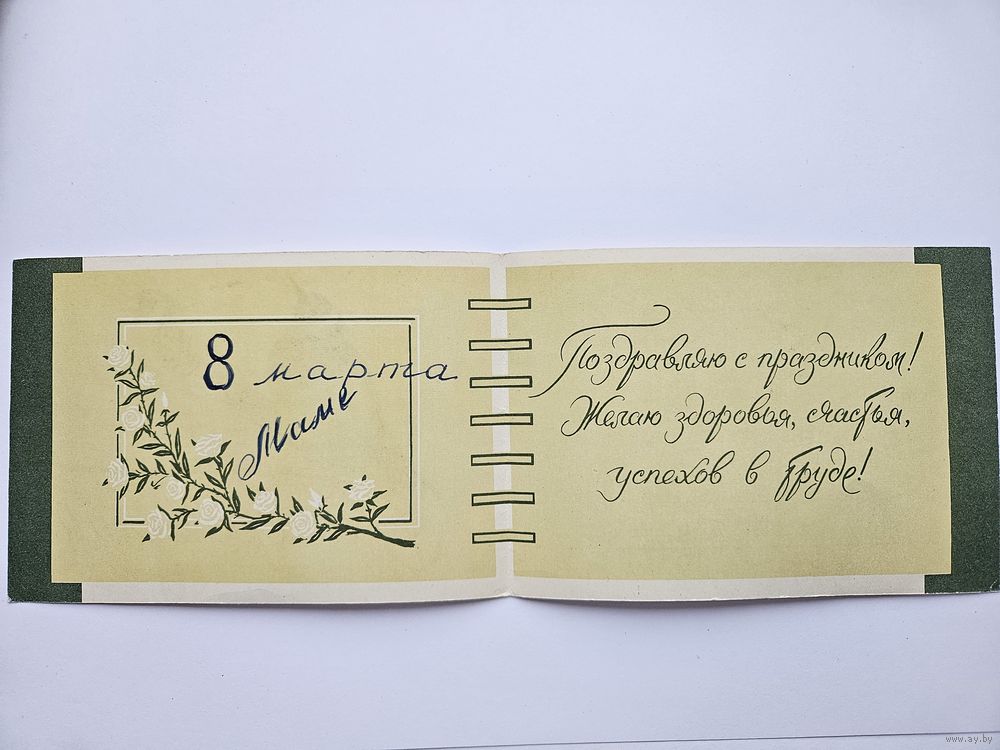 8 марта
Маме
Поздравляю с праздником!
Желаю здоровья, счастья,
успехов в труде!
www.ay.by